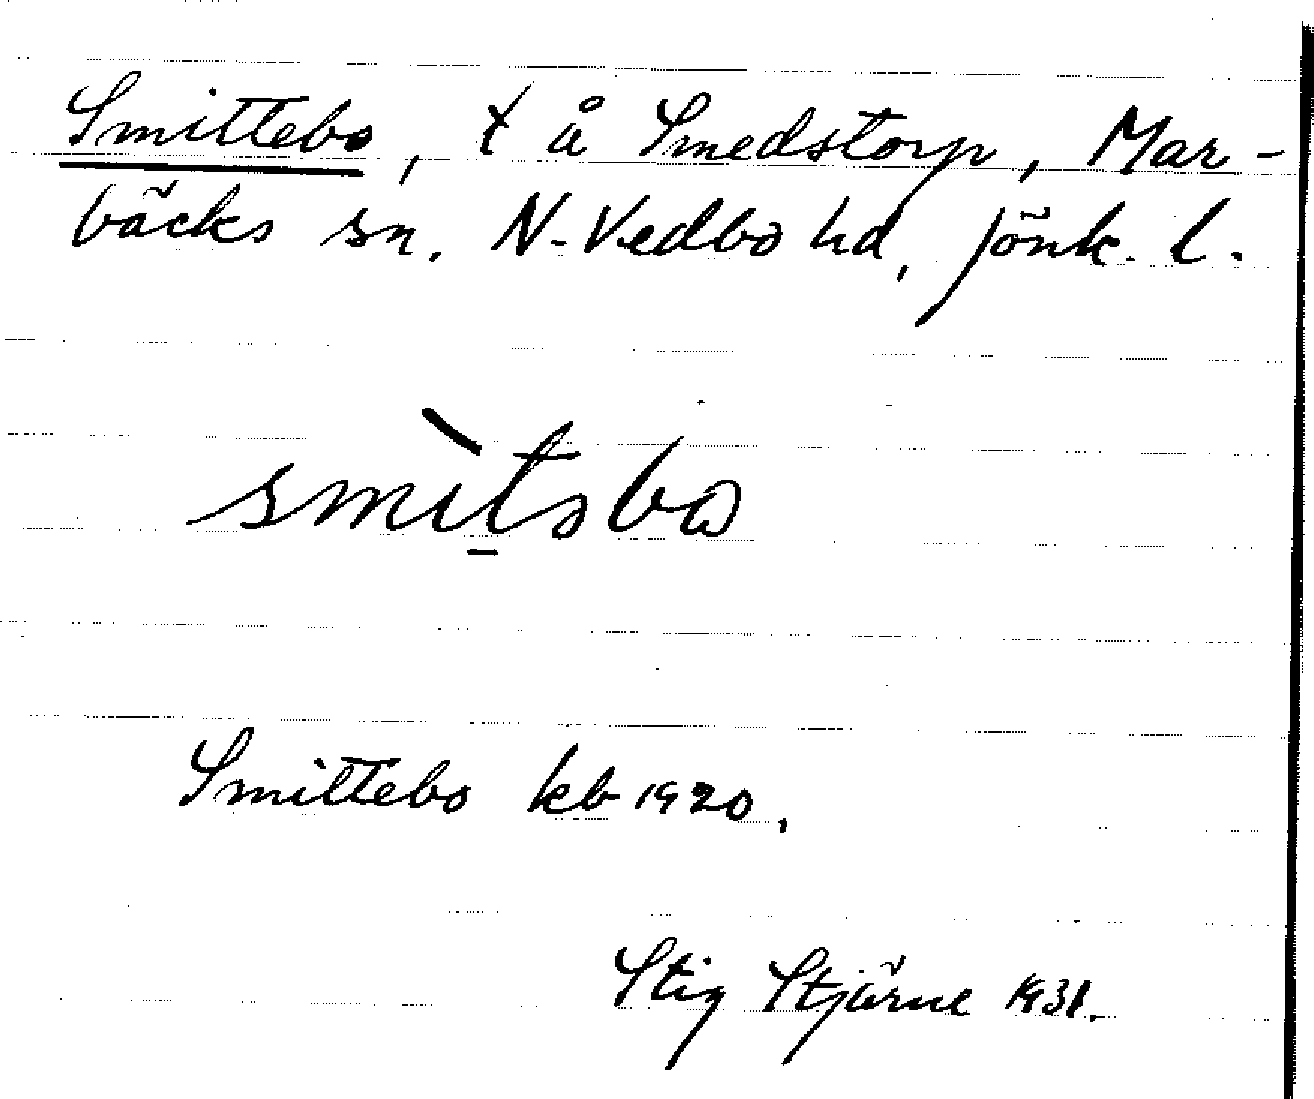 Smittebo, t å Smedstorp, Mar-
bäcks sn. N. Vedbo hd, Jönk. l.
smìtsbo
Smittebo kb 1920.
Stig Stjärne 1931.